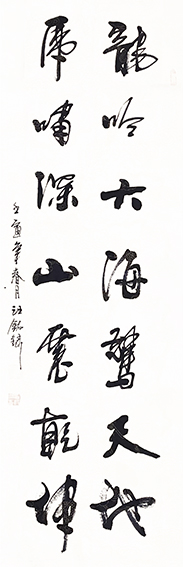 龍吟大海驚天地
虎嘯深山震乾坤